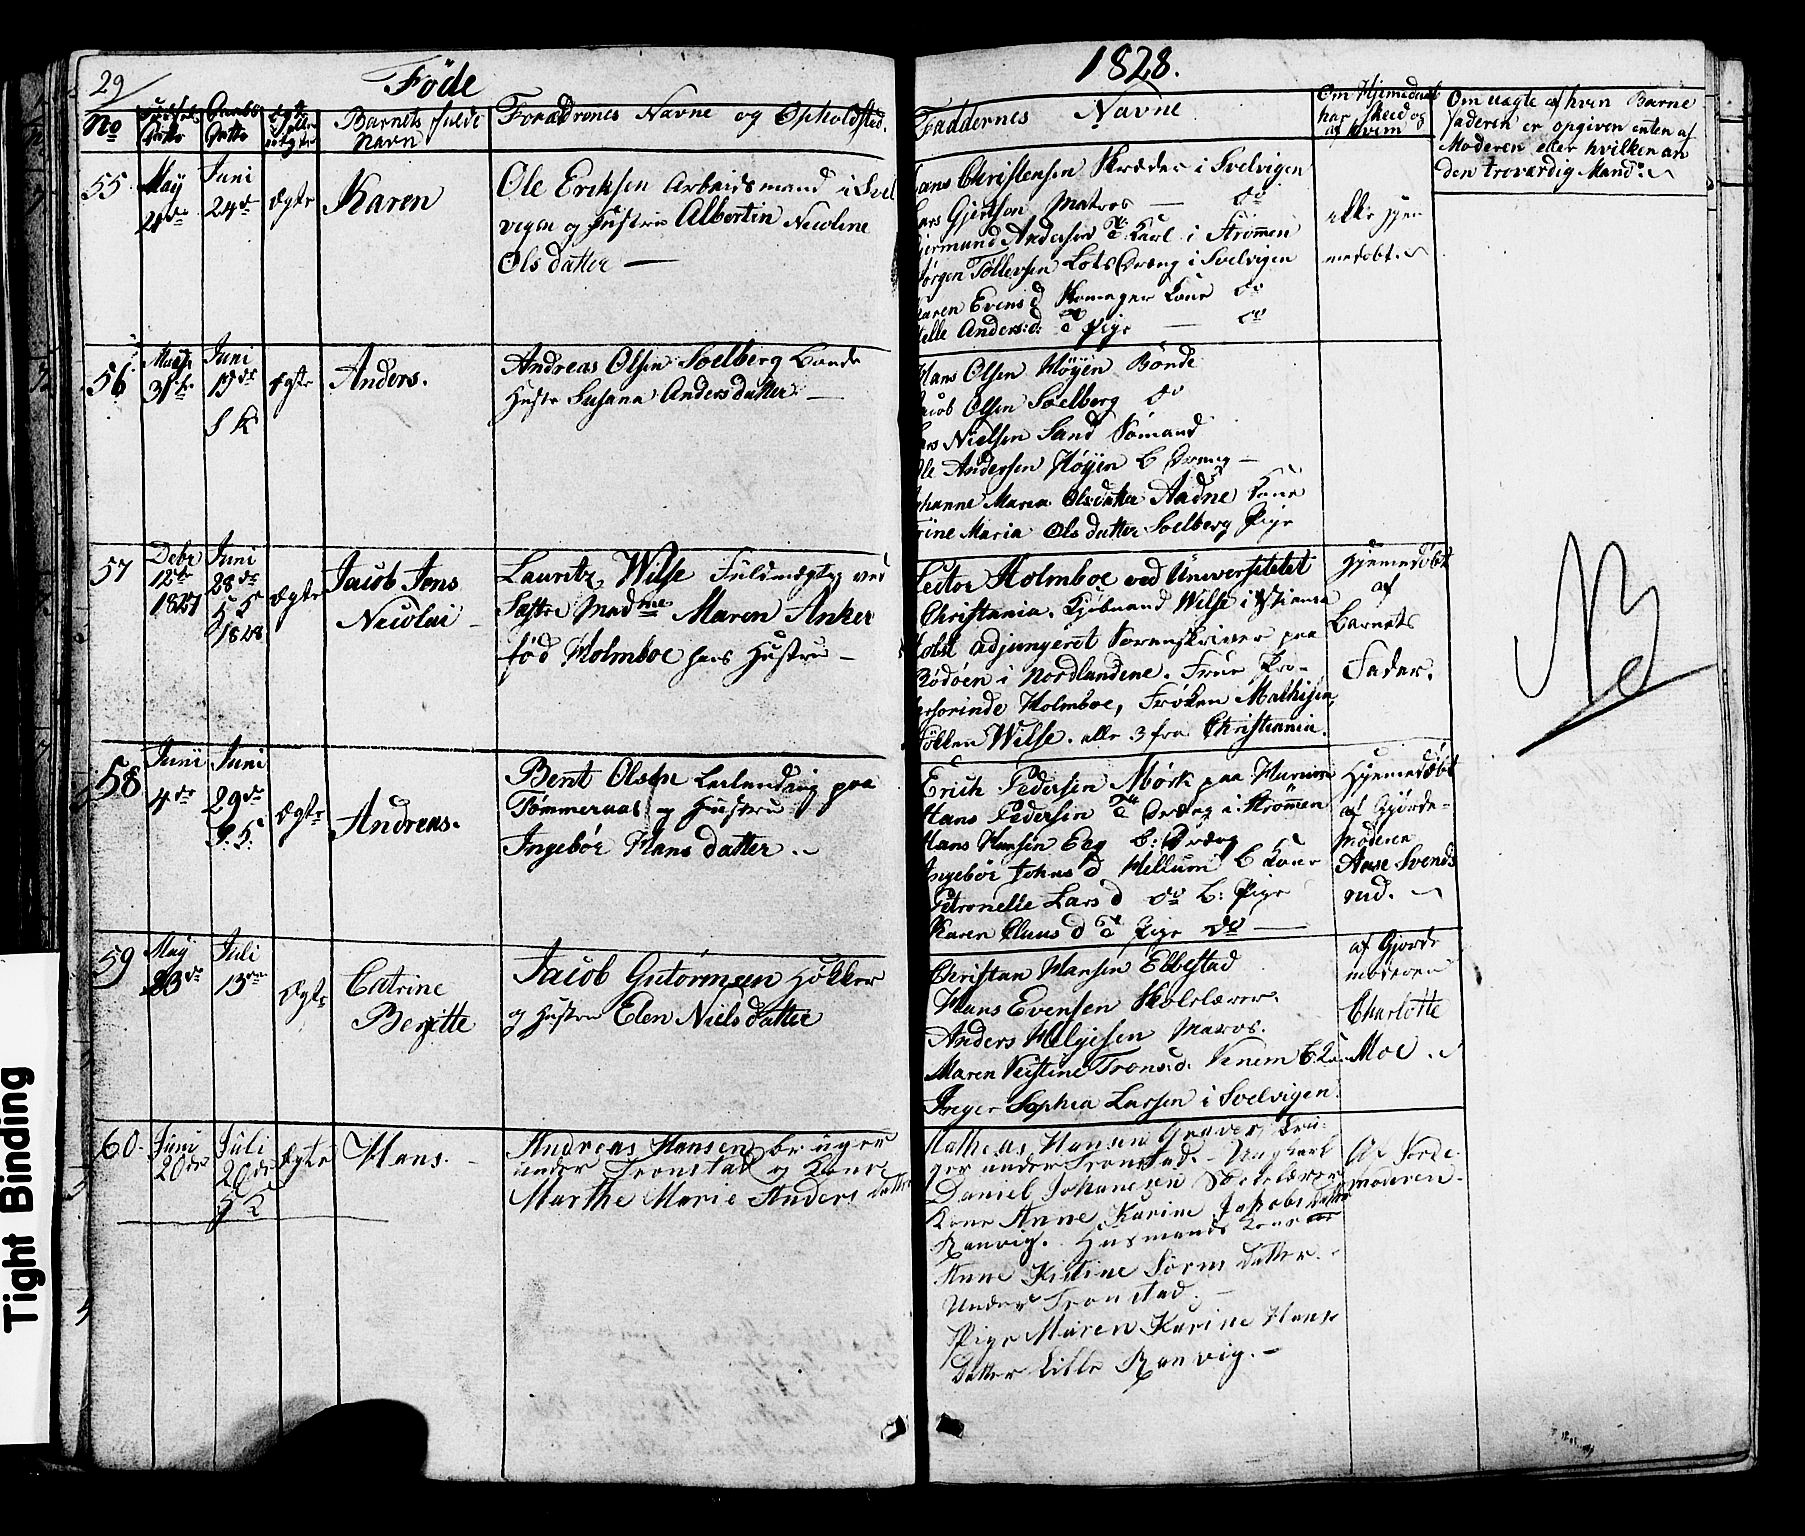 29
Föde
1828.
No
Daabs
Datto
Barnets fulde
Navn
Forældrenes Navne og Opholdsted.
Faddernes Navne
Om Hjemedaab
har skeed og
af hvem
Om uægte af hvem Barne
faderen er opgiven enten af
Moderen eller hvilken an
den troværdig Mand.
55
May
Juni
24de
ægte
Karen
Ole Eriksen Arbeidsmand i Svel
vigen og Hustru Albertin Nicoline
Ols datter —
ans Christensen Skræder i Svelvigen
ars Gjertsen Matros — do
Andersen Karl i Strömmen
örgen Tollevsen Lots Dreng i Svelvigen
aren Evens d Kone do
elle Anders:d: Pige — do
ikke hjem
medöbt.
56
May
31te
Juni
15de
S K
ægte
Anders.
Andreas Olsen Soelberg Bonde
Hustr Susana Andersdatter —
Hans Olsen Höyen Bonde
acob Olsen Soelberg do
ars Nielsen Sand Sömand
Ole Andersen Höyen B Dreng —
ohanne Maria Olsdatter Aadne Kone
rine Maria Olsdatter Soelberg Pige
57
Debr
12te
1827
Juni
28de
H S
1828
ægte
Jacob Jens
Nicolai —
Lauritz Wilse Fuldmægtig ved
Madme Maren Anker
föd Holmboe hans Hustru —
Lector Holmboe ved Universitetet
Christiania. Kjöbmand Wilse i
Holst adjungeret Sorenskriver paa
Rödöen i Nordlandene. Frue Pro-
fesorinde Holmboe, Fröken Mathisen,
Fröken Wilse. alle 3 fra Christiania.
Hjemedöbt
af
Barnets
Fader.
NB
58
Junii
4de
Juni
29de
S. S.
ægte
Andreas.
Bent Olsen Leilending paa
Tömmeraas og Hustru
Ingebör Hans datter.
Erich Pedersen Mörk paa Hurum
Hans Pedersen Dreng i Strömmen
Hans Hansen Eeg B: Dreng
Ingebör Johns d Hellum B Kone
Petronelle Lars d do B: Pige
Karen Claus d Pige do —
Hjemedöbt
af Gjorde-
moderen
Anne Svends
rud.
59
May
23de
Juli
13de
ægte
Catrine
Beritte
Jacob Gutormsen Hökker
og Hustru Elen Niels datter
Christan Hansen Ebbestad
Hans Evensen Skolelærer
Anders Helgesen Matros.
Maren Kistine Tronsd. Venem
Inger Sophia Larsen i Svelvigen.
af Gjorde
moderen
Charlotte
Moe.
60
Juni
20de
Juli
20de
S K
ægte
Hans. —
Andreas Hansen bruger
under Tronstad og Kone
Marthe Marie Anders datter
Matheas Hansen Graver, bru-
ger under Tronstad. — Ungkarl
Daniel Johansen Skolelærer
Kone Anne Karine Jakobsdatter
Ranvig. Husmands Kone
Anne Kistine Sörens datter.
Under Tronstad. —
Pige Maren Karine Hans
datter Lille Ranvig. —
Af Jorde-
moderen.
Tight Binding